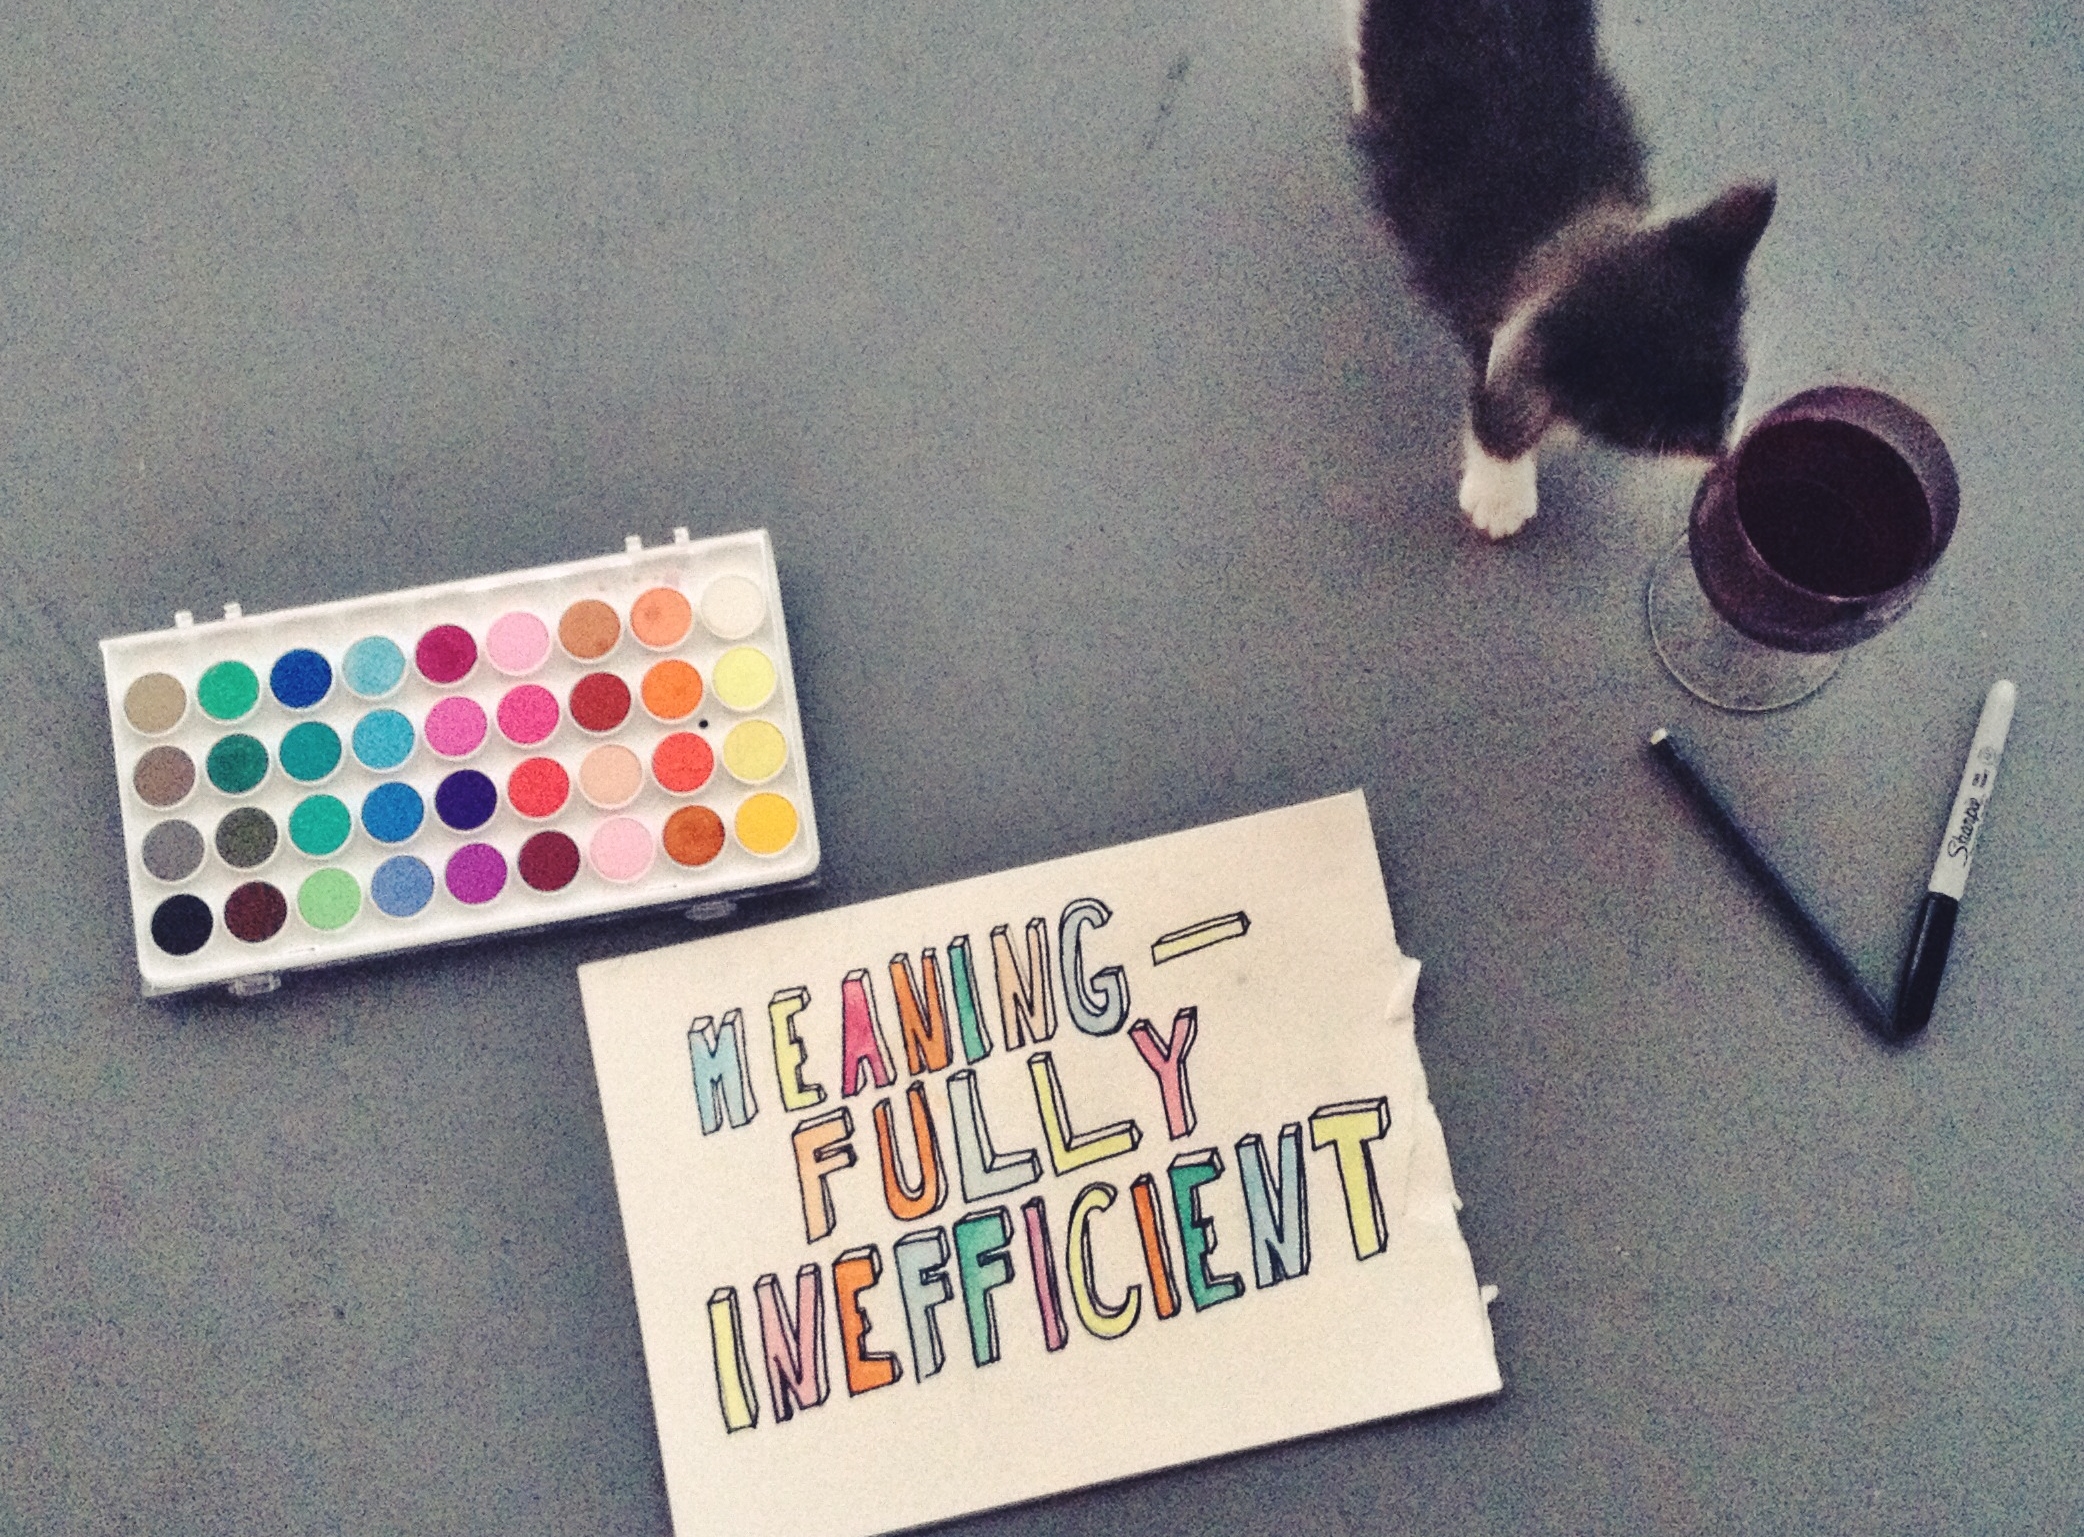 MEANING—
FULLY
INEFFICIENT
Sharpie